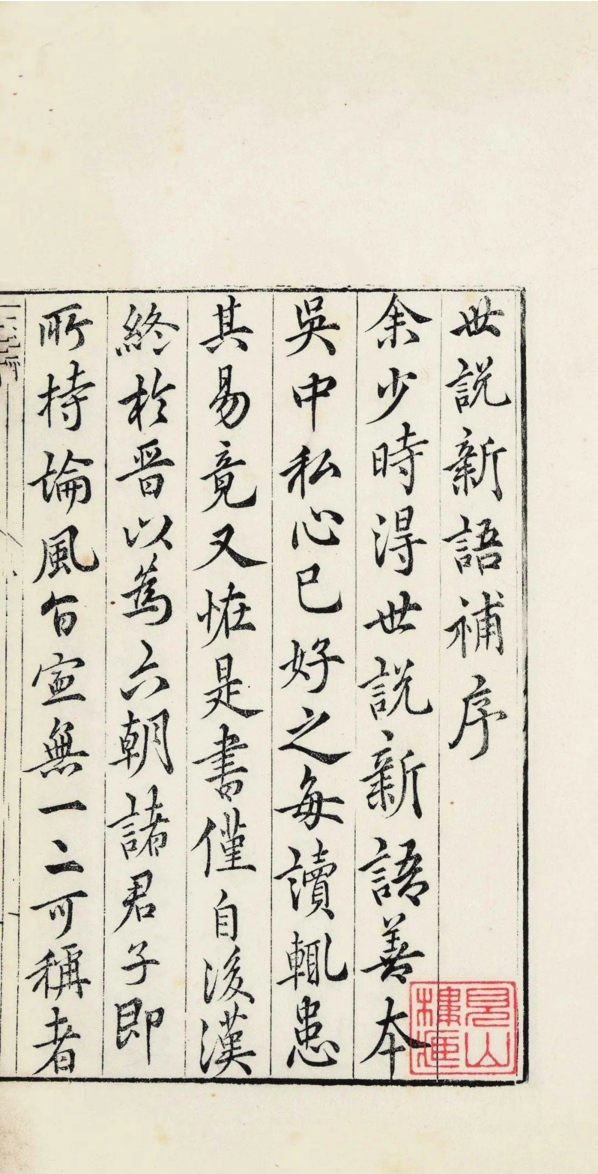 世說新語補序
余少時得世說新語善本
吳中私心已好之每讀輒患
其易竟又恠是書僅自後漢
終於晉以為六朝諸君子即
所持論風旨寍無一二可稱者